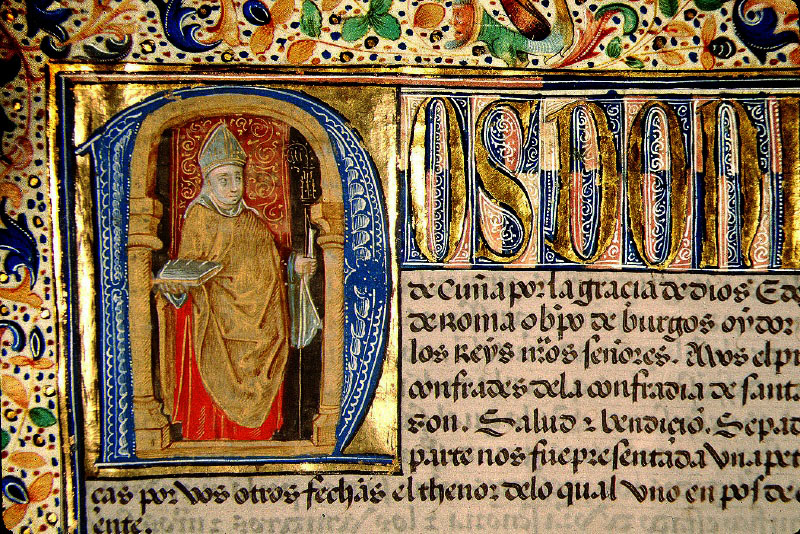 NOS DON
de Cuña por la gracia de dios E de
de Roma obpo de burgos oydor
los Reys nros señores. A vos el pri
confrades dela confradia de santa
gon. Salud z bendiçiõ. Sepad
parte nos fue presentada vna pet
cas por vos otros fechas el thenor delo qual vno en pos de
ente.